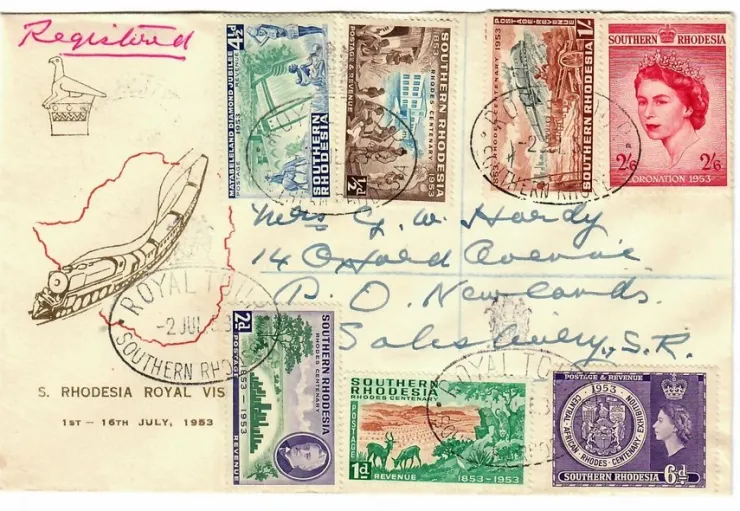 Registered
4½d
MATABELELAND DIAMOND JUBILEE
1953
POSTAGE
REVENUE
SOUTHERN RHODESIA
POSTAGE & REVENUE
1853
RHODES CENTENARY
1953
SOUTHERN RHODESIA
½d
POSTAGE - REVENUE
1/-
RHODES CENTENARY 1953
SOUTHERN RHODESIA
SOUTHERN RHODESIA
2/6 2/6
CORONATION 1953
-2 JUL
SOUTHERN RHODE
Mrs G. W. Hardy
14 Oxford Avenue
P. O. Newlands.
Salisbury, S.R.
ROYAL TOU
-2 JUL 53
SOUTHERN RHO
S. RHODESIA ROYAL VIS
1ST - 16TH JULY, 1953
2d
POSTAGE
1853-1953
REVENUE
SOUTHERN RHODESIA
RHODES CENTENARY
SOUTHERN
RHODESIA
RHODES CENTENARY
POSTAGE
1d REVENUE 1853-1953
ROYAL TOU
POSTAGE & REVENUE
1953
CENTRAL AFRICAN RHODES CENTENARY EXHIBITION
SOUTHERN RHODESIA 6d